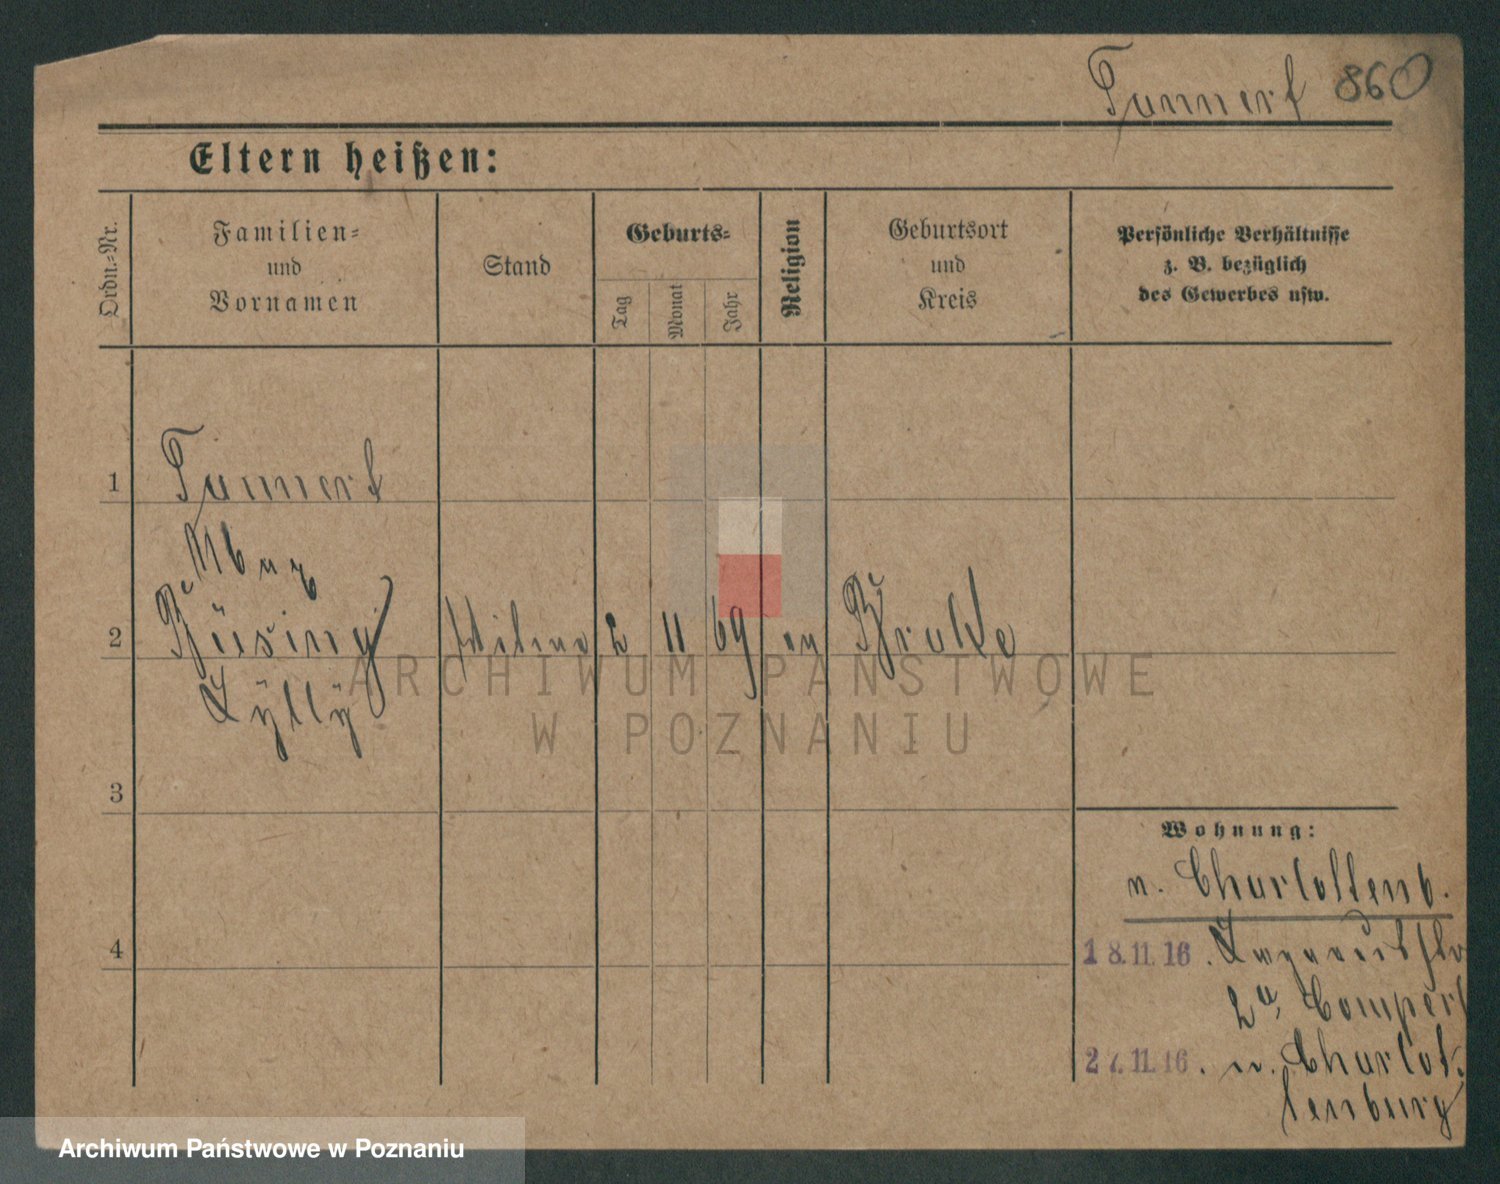 Tannert 860
Eltern heißen:
Ordn.-Nr.
Familien-
und
Vornamen
Stand
Geburts-
Tag
Monat
Jahr
Religion
Geburtsort
und
Kreis
Persönliche Verhältnisse
z. B. bezüglich
des Gewerbes usw.
1
Tannert
Max
2
Büsing 2 11 69 ev Brake
Lylly
3
4
Wohnung:
n. Charlottenb.
18.11.16.
2a,
27.11.16. n. Charlot-
tenburg
ARCHIWUM PAŃSTWOWE
W POZNANIU
Archiwum Państwowe w Poznaniu